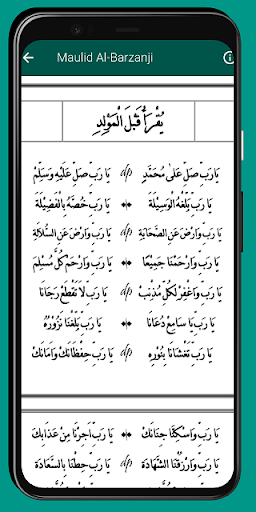 Maulid Al-Barzanji
يُقْرَأُ قَبْلَ الْمَوْلِدِ
يَا رَبِّ صَلِّ عَلَى مُحَمَّدٍ يَا رَبِّ صَلِّ عَلَيْهِ وَسَلِّمْ
يَا رَبِّ بَلِّغْهُ الْوَسِيْلَةَ يَا رَبِّ خُصَّهُ بِالْفَضِيْلَةِ
يَا رَبِّ وَارْضَ عَنِ الصَّحَابَةِ يَا رَبِّ وَارْضَ عَنِ السُّلَالَةِ
يَا رَبِّ وَارْحَمْنَا جَمِيْعًا يَا رَبِّ وَارْحَمْ كُلَّ مُسْلِمٍ
يَا رَبِّ وَاغْفِرْ لِكُلِّ مُذْنِبٍ يَا رَبِّ لَا تَقْطَعْ رَجَانَا
يَا رَبِّ يَا سَامِعْ دُعَانَا يَا رَبِّ بَلِّغْنَا نَزُوْرُهُ
يَا رَبِّ تَغْشَانَا بِنُوْرِهِ يَا رَبِّ حِفْظَانَكَ وَأَمَانَكَ
يَا رَبِّ وَاسْكِنَّا جِنَانَكَ يَا رَبِّ أَجِرْنَا مِنْ عَذَابِكَ
يَا رَبِّ وَارْزُقْنَا الشَّهَادَةَ يَا رَبِّ حِطْنَا بِالسَّعَادَةِ